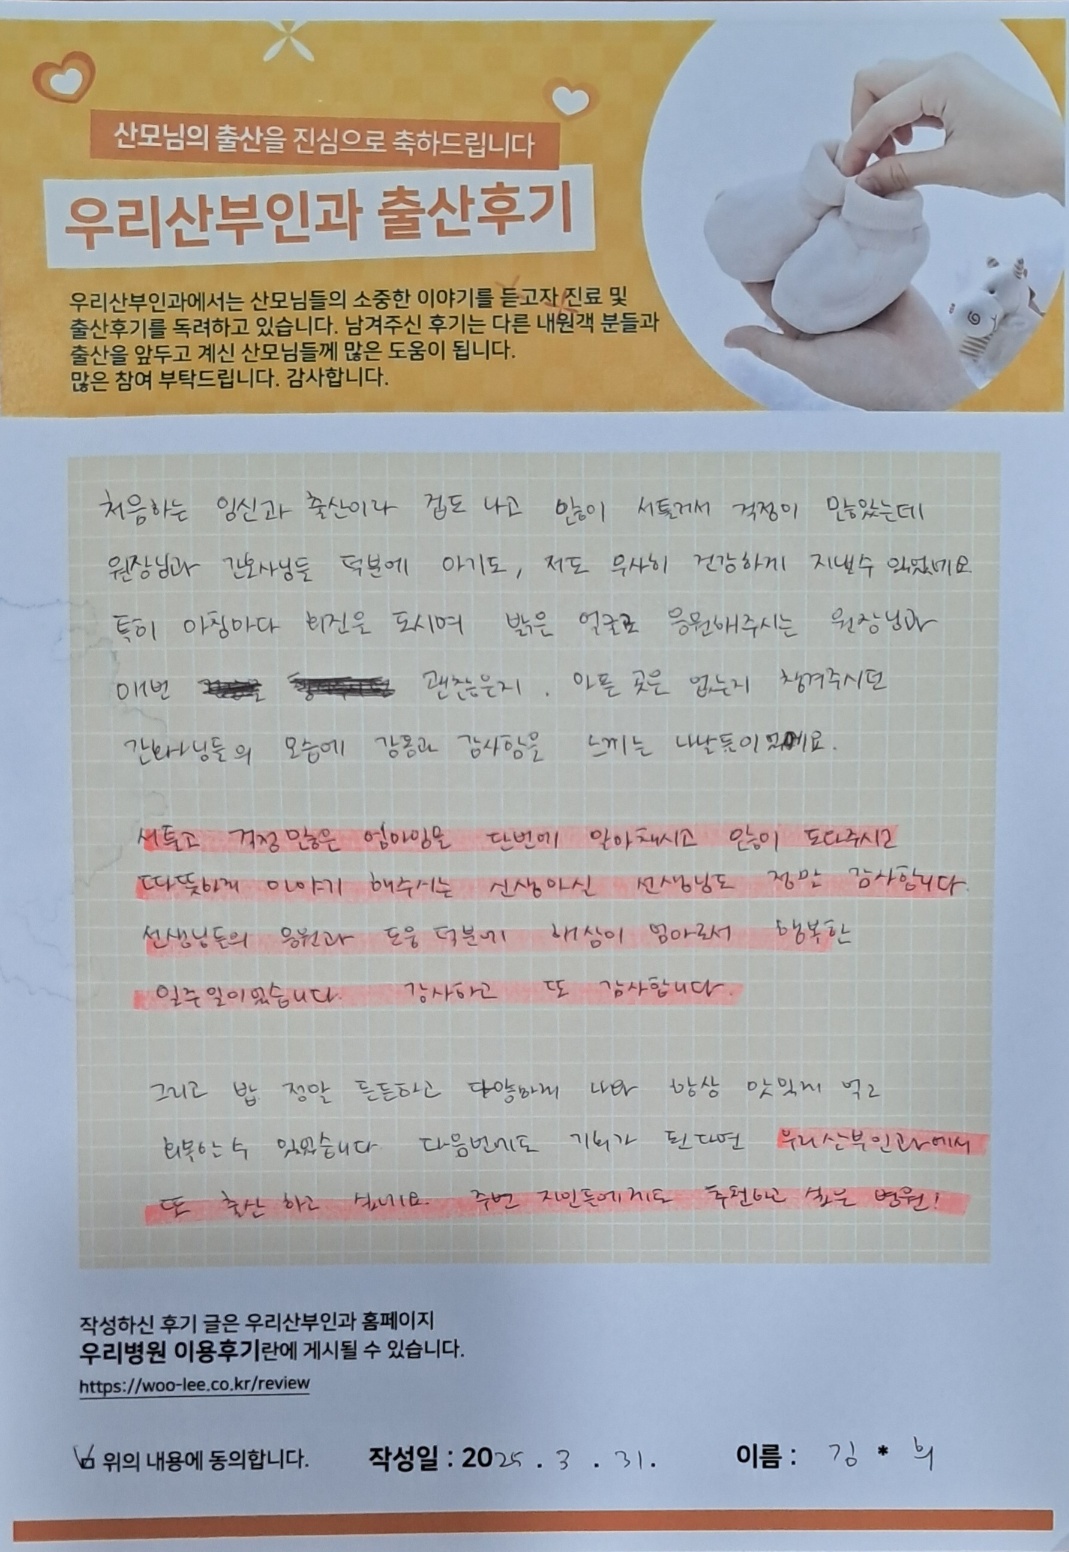 산모님의 출산을 진심으로 축하드립니다
우리산부인과 출산후기
우리산부인과에서는 산모님들의 소중한 이야기를 듣고자 진료 및
출산후기를 독려하고 있습니다. 남겨주신 후기는 다른 내원객 분들과
출산을 앞두고 계신 산모님들께 많은 도움이 됩니다.
많은 참여 부탁드립니다. 감사합니다.
처음하는 임신과 출산이라 겁도 나고 많이 서툴러서 걱정이 많았는데
원장님과 간호사님들 덕분에 아기도, 저도 무사히 건강하게 지낼수 있었네요
특히 아침마다 회진을 도시며 밝은 얼굴로 응원해주시는 원장님과
매번 괜찮은지. 아픈 곳은 없는지 챙겨주시던
간호사님들의 모습에 감동과 감사함을 느끼는 나날들이었네요.
서툴고 걱정많은 엄마임을 단번에 알아채시고 많이 도와주시고
따뜻하게 이야기 해주시는 신생아실 선생님도 정말 감사합니다
선생님들의 응원과 도움 덕분에 해삼이 엄마로서 행복한
일주일이었습니다. 감사하고 또 감사합니다.
그리고 밥 정말 든든하고 다양하게 나와 항상 맛있게 먹고
회복할 수 있었습니다 다음번에도 기회가 된다면 우리산부인과에서
또 출산 하고 싶네요. 주변 지인들에게도 추천하고 싶은 병원!
작성하신 후기 글은 우리산부인과 홈페이지
우리병원 이용후기란에 게시될 수 있습니다.
https://woo-lee.co.kr/review
위의 내용에 동의합니다. 작성일 : 2025 . 3 . 31. 이름 : 김 * 희